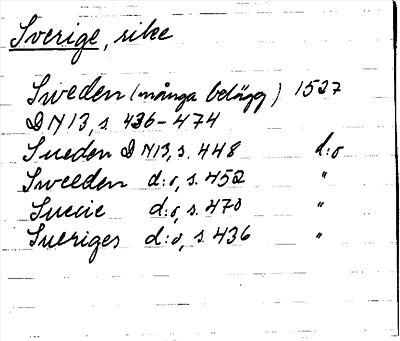 Sverige, rike
Sweden (många belägg) 1527
DN 13, s. 436-474
Sueden DN13, s. 448 d:o
Sweeden d:o, s. 452 "
Suecie d:o, s. 470 "
Sueriges d:o, s. 436 "